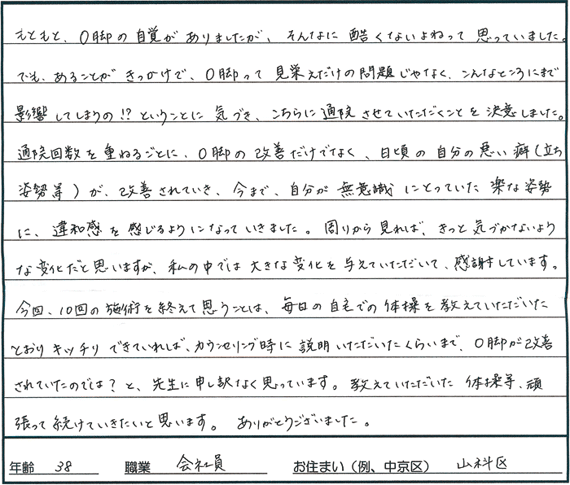 もともと、O脚の自覚がありましたが、そんなに酷くないよねって思っていました。
でも、あることがきっかけで、O脚って見栄えだけの問題じゃなく、こんなところにまで
影響してしまうの!?ということに気づき、こちらに通院させていただくことを決意しました。
通院回数を重ねるごとに、O脚の改善だけでなく、日頃の自分の悪い癖(立ち
姿勢等)が、改善されていき、今まで、自分が無意識にとっていた楽な姿勢
に、違和感を感じるようになっていきました。周りから見れば、きっと気づかないよう
な変化だと思いますが、私の中では大きな変化を与えていただいて、感謝しています。
今回、10回の施術を終えて思うことは、毎日の自宅での体操を教えていただいた
とおりキッチリできていれば、カウンセリング時に説明いただいたくらいまで、O脚が改善
されていたのでは?と、先生に申し訳なく思っています。教えていただいた体操等、頑
張って続けていきたいと思います。ありがとうございました。
年齢 38 職業 会社員 お住まい(例、中京区) 山科区